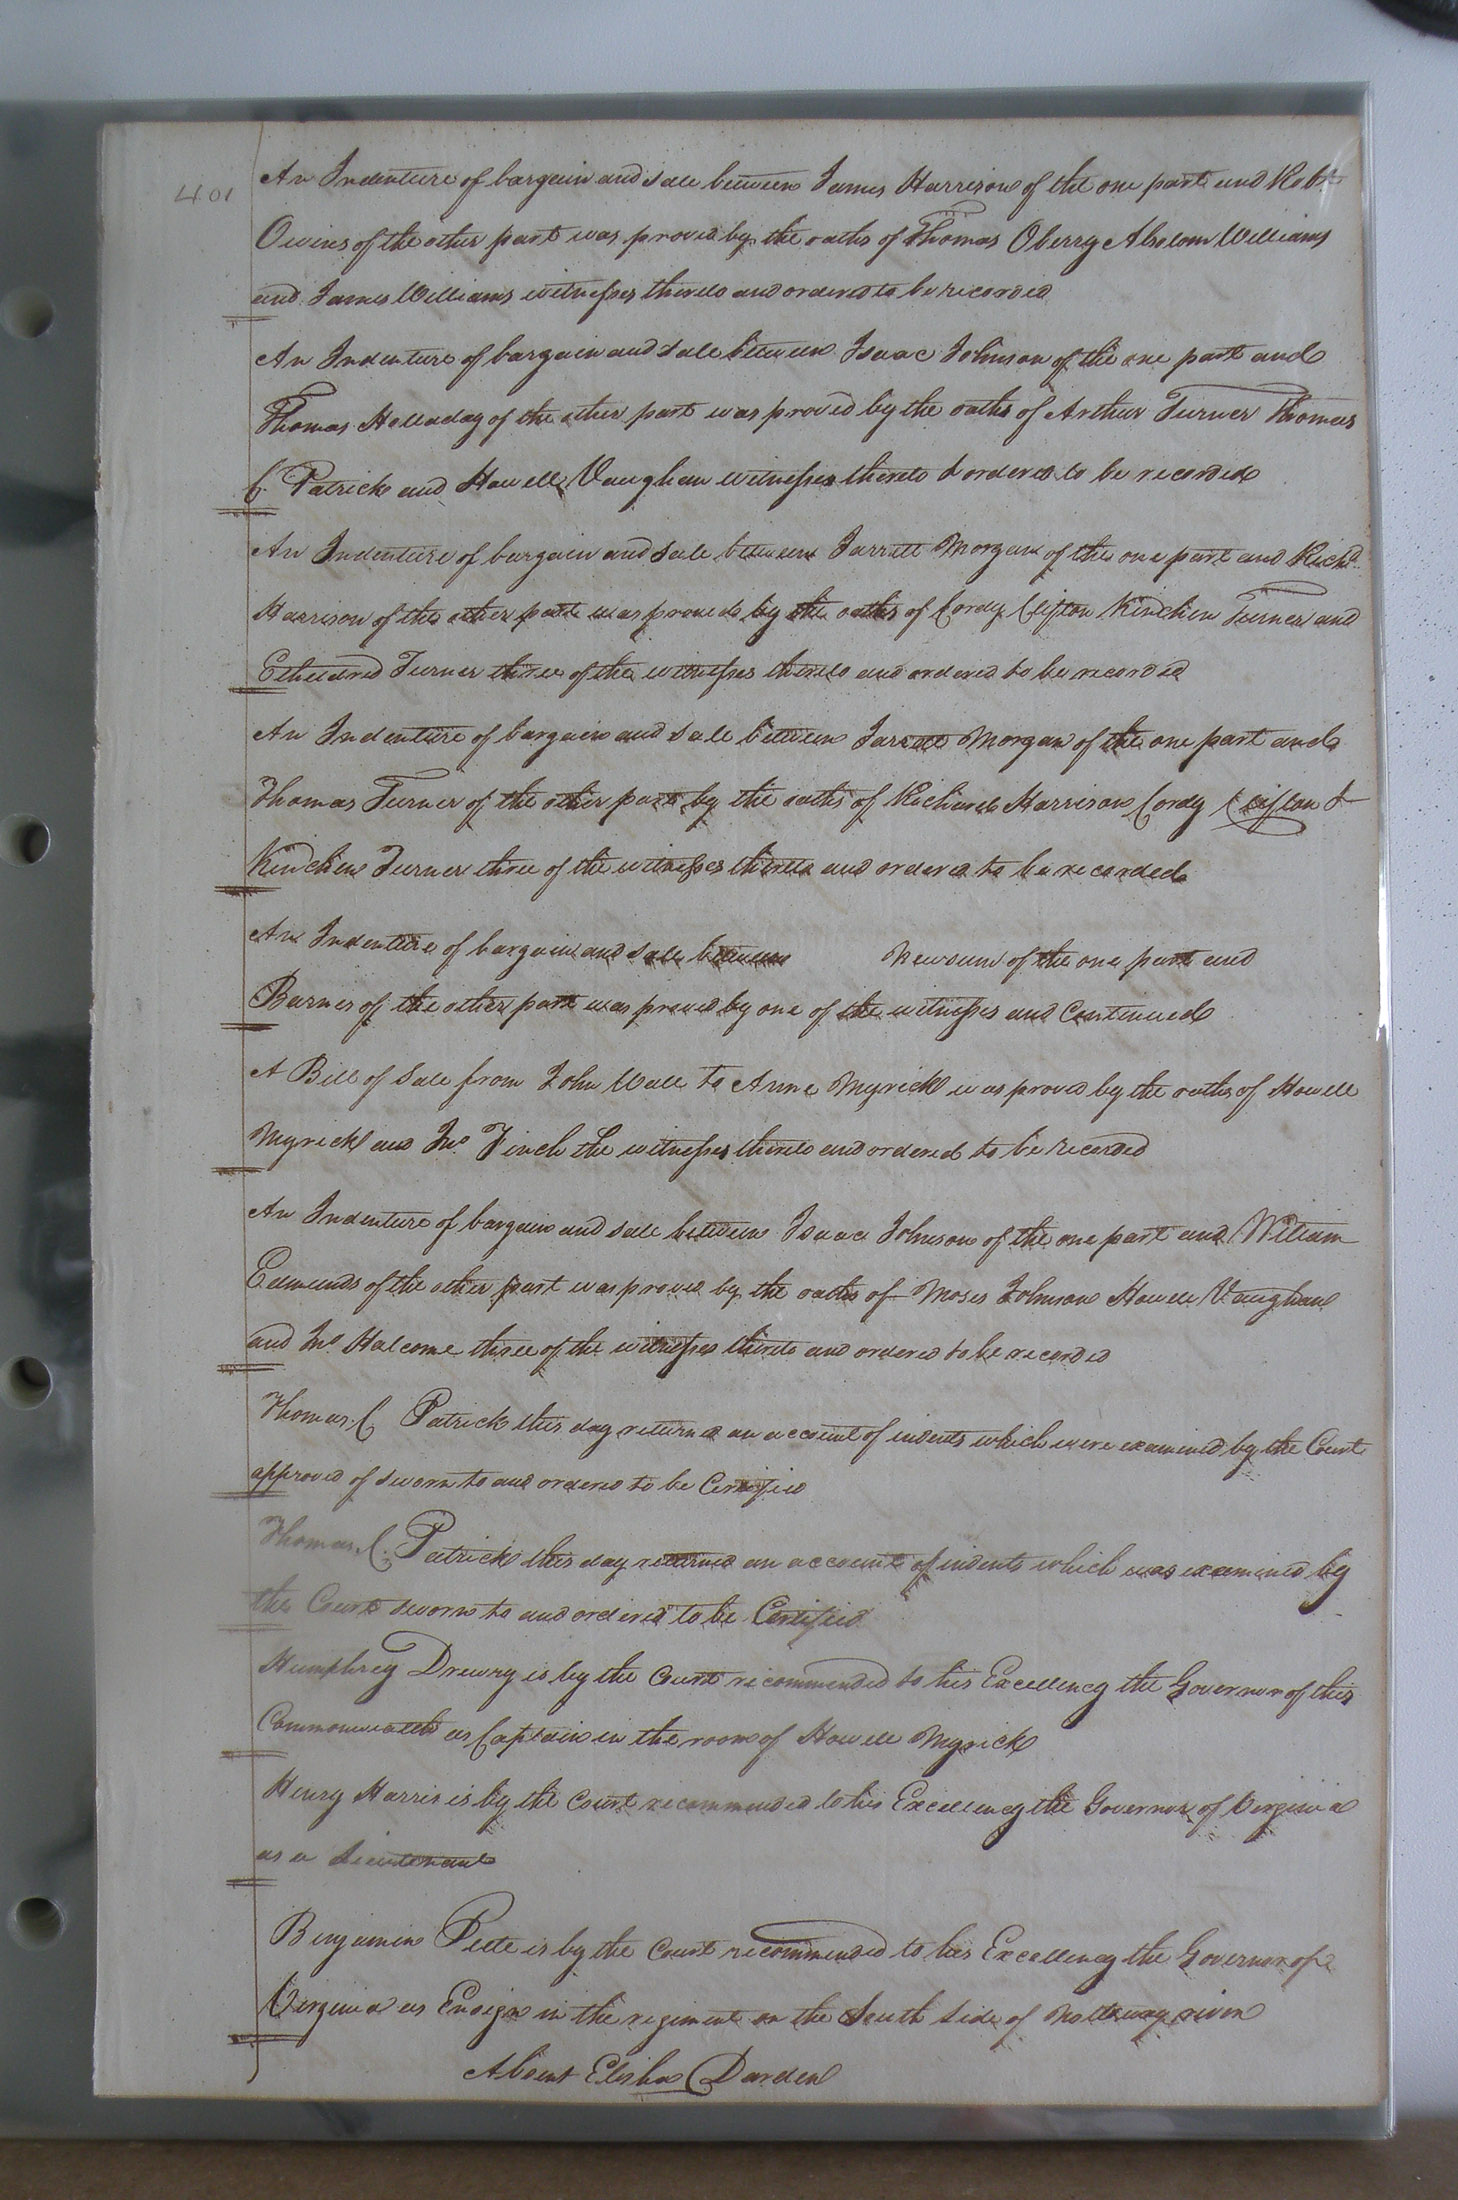 401
An Indenture of bargain and sale between James Harrison of the one part and Robt
Owins of the other part was proved by the oaths of Thomas Oberry Absolom Williams
and James Williams witnesses thereto and ordered to be recorded
An Indenture of bargain and sale between Isaac Johnson of the one part and
Thomas Holladay of the other part was proved by the oaths of Arthur Turner Thomas
C. Patrick and Howell Vaughan witnesses thereto & ordered to be recorded
An Indenture of bargain and sale between Jarratt Morgan of the one part and Richd
Harrison of the other part was proved by the oaths of Cordy Clifton Kinchin Turner and
Etheldred Turner three of the witnesses thereto and ordered to be recorded
An Indenture of bargain and sale between Jarratt Morgan of the one part and
Thomas Turner of the other part by the oaths of Richard Harrison Cordy Clifton &
Kinchin Turner three of the witnesses thereto and ordered to be recorded
An Indenture of bargain and sale between Newsum of the one part and
Barnes of the other part was proved by one of the witnesses and Continued
A Bill of Sale from John Wall to Anne Myrick was proved by the oaths of Howell
Myrick and Jno. Finch the witnesses thereto and ordered to be recorded
An Indenture of bargain and sale between Isaac Johnson of the one part and William
Edmunds of the other part was proved by the oaths of Moses Johnson Howell Vaughan
and Jno Halcome three of the witnesses thereto and ordered to be recorded
Thomas C Patrick this day returned an account of indents which were examined by the Court
approved of sworn to and ordered to be Certified
Thomas C. Patrick this day returned an account of indents which was examined by
the Court sworn to and ordered to be Certified
Humphrey Drewry is by the Court recommended to his Excellency the Governor of this
Commonwealth as Captain in the room of Howell Myrick
Henry Harris is by the Court recommended to his Excellency the Governor of Virginia
as a Lieutenant
Benjamin Pete is by the Court recommended to his Excellency the Governor of
Virginia as Ensign in the regiment on the South side of Nottoway river
Absent Elisha Darden